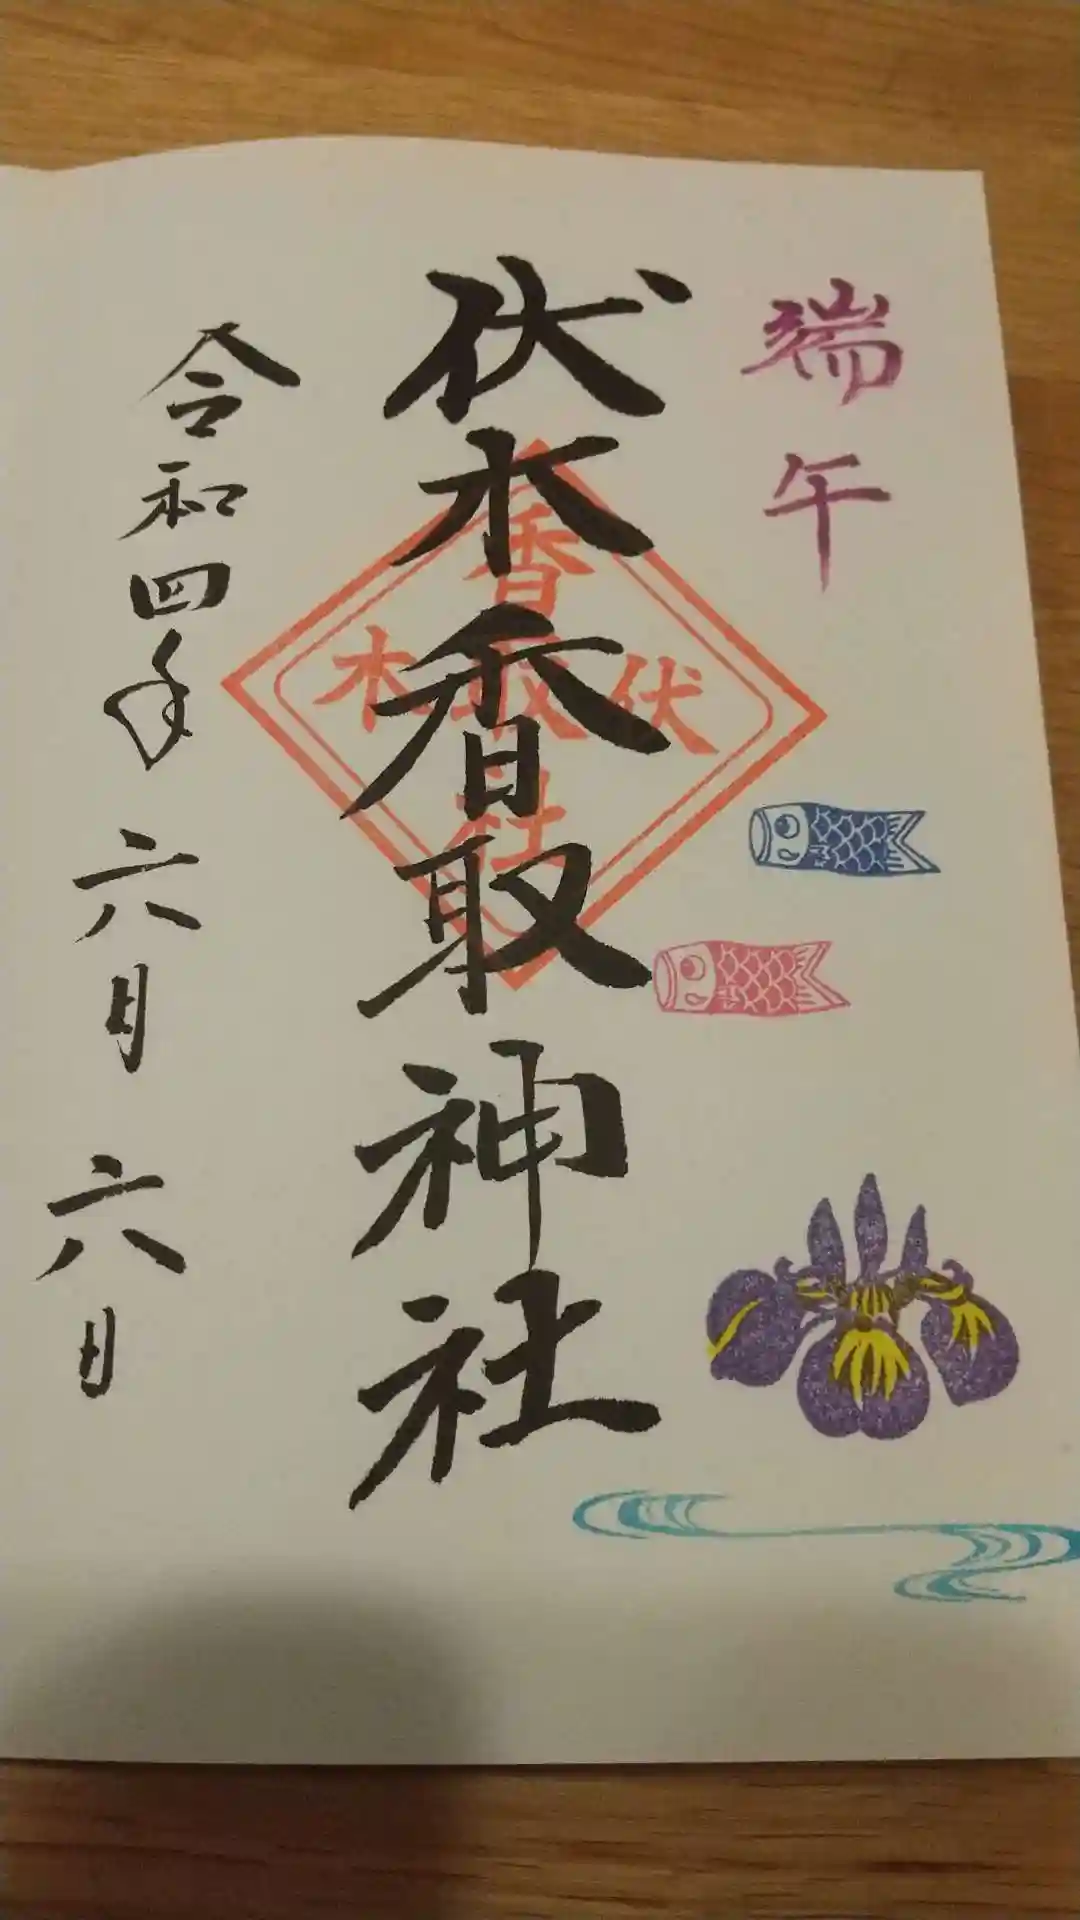 端午
伏木香取神社
香取社
伏木
令和四年六月六日